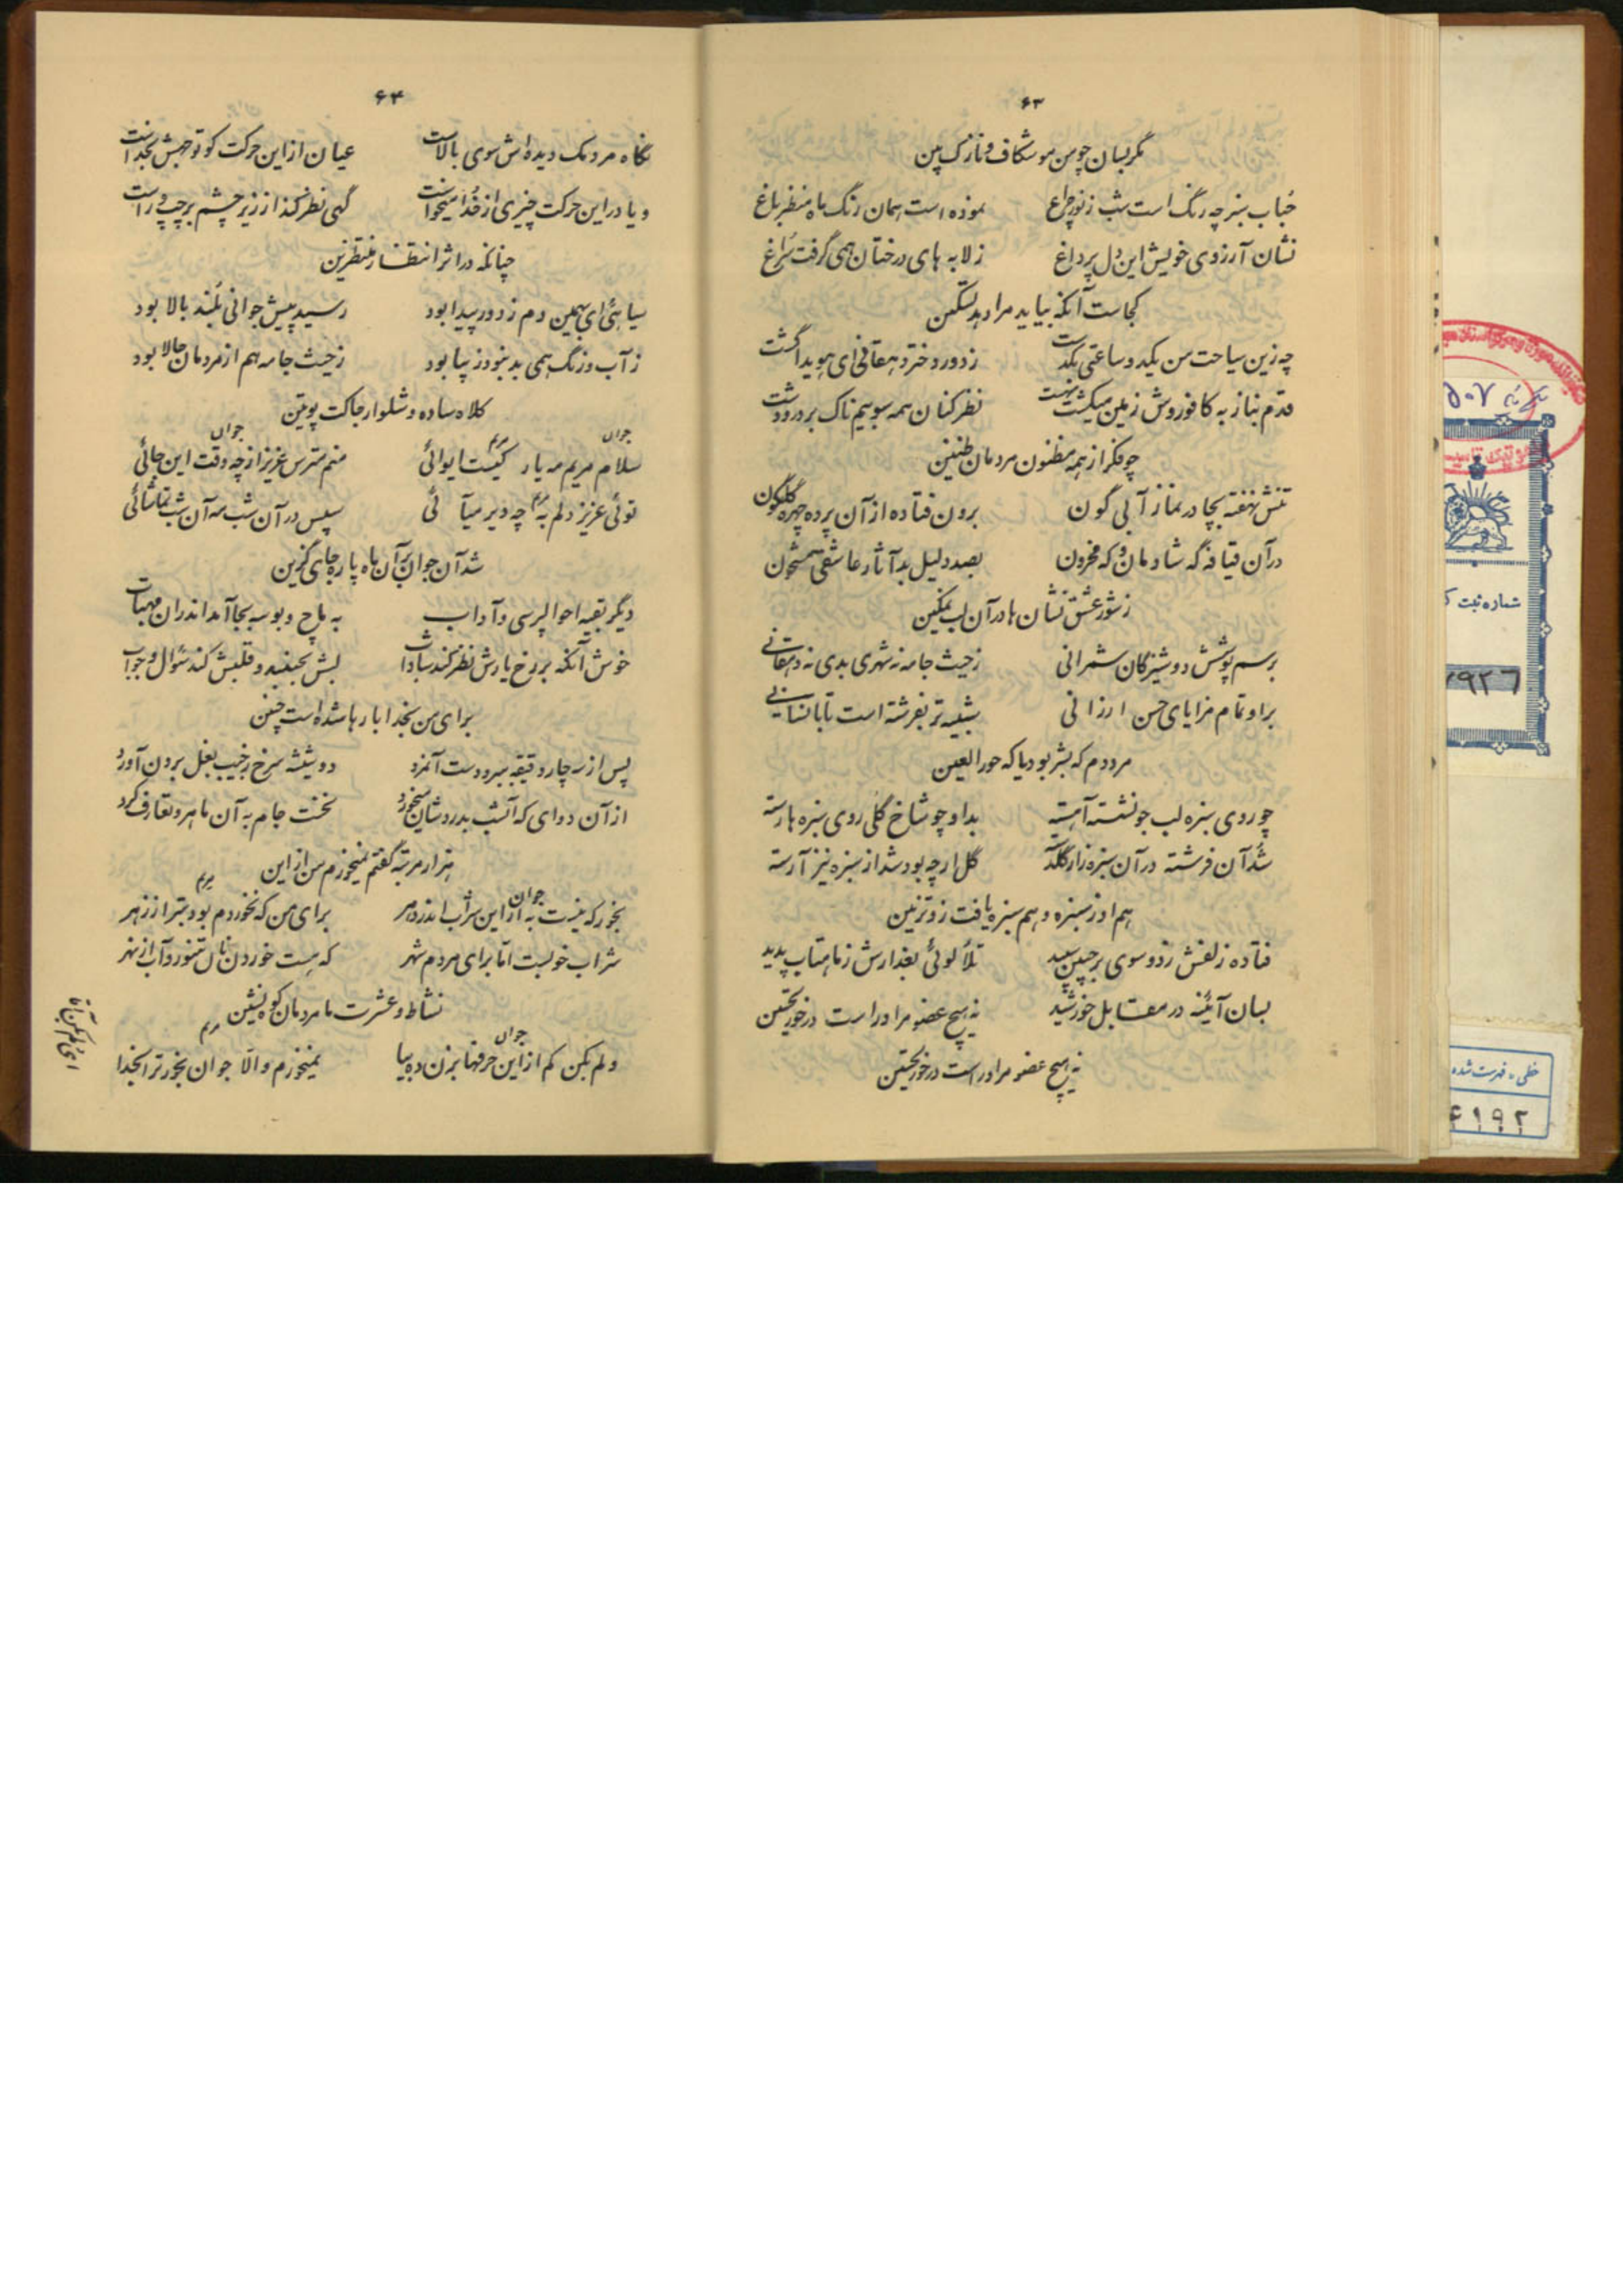 ۶۳
مگر بسان چو من مو شکاف و نازک بین
حباب سبز چه رنگ است شب ز نور چراغ نموده است همان رنگ ماه منظر باغ
نشان آرزوی خویش این دل پر داغ ز لابه های درختان همی گرفت سراغ
کجاست آنکه بیاید مرا دهد تسکین
چه زین سیاحت من یکدو ساعتی بگذشت ز دور دختر دهقانی ای هویدا گشت
قدم بناز به کافوروش زمین میهشت نظر کنان همه سو بیمناک بر در و دشت
چو فکر از همه مظنون مردمان ظنین
تنش نهفته بچادر نماز آبی گون برون فتاده از آن پرده چهره گلگون
در آن قیافه گه شادمان و گه محزون بصد دلیل بد آثار عاشقی مشحون
ز شور عشق نشان ها در آن لب نمکین
برسم پوشش دوشیزگان شمرانی ز حیث جامه نه شهری بدی نه دهقانی
براو تمام مزایای حسن ارزانی شبیه تر بفرشته است تا بانسانی
مرددم که بشر بود یا که حورالعین
چو روی سبزه لب جو نشست آهسته بد او چو شاخ گلی روی سبزه ها رسته
شد آن فرشته در آن سبزه زار گلدسته گل ار چه بود شد از سبزه نیز آرسته
هم او ز سبزه و هم سبزه یافت زو تزئین
فتاده زلفش ز دو سوی بر جبین سپید تلألوئی بعذارش ز ماهتاب پدید
بسان آئینه در مقابل خورشید نه هیچ عضو مر او راست در خور تحسین
نه هیچ عضو مر او راست در خور تحسین
۶۴
نگاه مردمک دیده اش سوی بالاست عیان از این حرکت کو توجهش بخداست
و یا در این حرکت چیزی از خدا میخواست گهی نظر کند از زیر چشم بر چپ و راست
چنانکه در اثر انتظار منتظرین
سیاهئی ای بهمین دم ز دور پیدا بود رسید پیش جوانی بلند بالا بود
ز آب و رنگ همی بد نبود زیبا بود ز حیث جامه هم از مردمان حالا بود
کلاه ساده و شلوار ژاکت پوتین
جوان
مریم
جوان
سلام مریم مه پاره کیست ایوائی منم مترس عزیز از چه وقت این جائی
مریم
توئی عزیز دلم به چه دیر میآئی سپس در آن شب مه آن شب تماشائی
شد آن جوان بر آن ماه پاره جای گزین
دیگر بقیه احوالپرسی و آداب به ماچ و بوسه بجا آمد اندر آن مهتاب
خوش آنکه بر رخ یارش نظر کند شاداب لبش نجنبد و قلبش کند سئوال و جواب
برای من بخدا بارها شده است چنین
پس از سه چار دقیقه ببرد دست آنمرد دو شیشه سرخ ز جیب بغل برون آورد
از آن دوای که آنشب بدردشان میخورد نخست جام به آن ماهرو تعارف کرد
هزار مرتبه گفتم نمیخورم من از این
جوان
مریم
بخور که نیست به از این شراب اندر دهر برای من که نخوردم بود بتر از زهر
شراب خوبست اما برای مردم شهر که هست خوردن نان تنور و آب از نهر
نشاط و عشرت ما مردمان کوه نشین
جوان
مریم
ولم بکن کم از این حرفها بزن ده بیا نمیخورم والا جوان بخور ترا بخدا
شماره ثبت ک
خطی - فهرست شده
۶۱۹۲